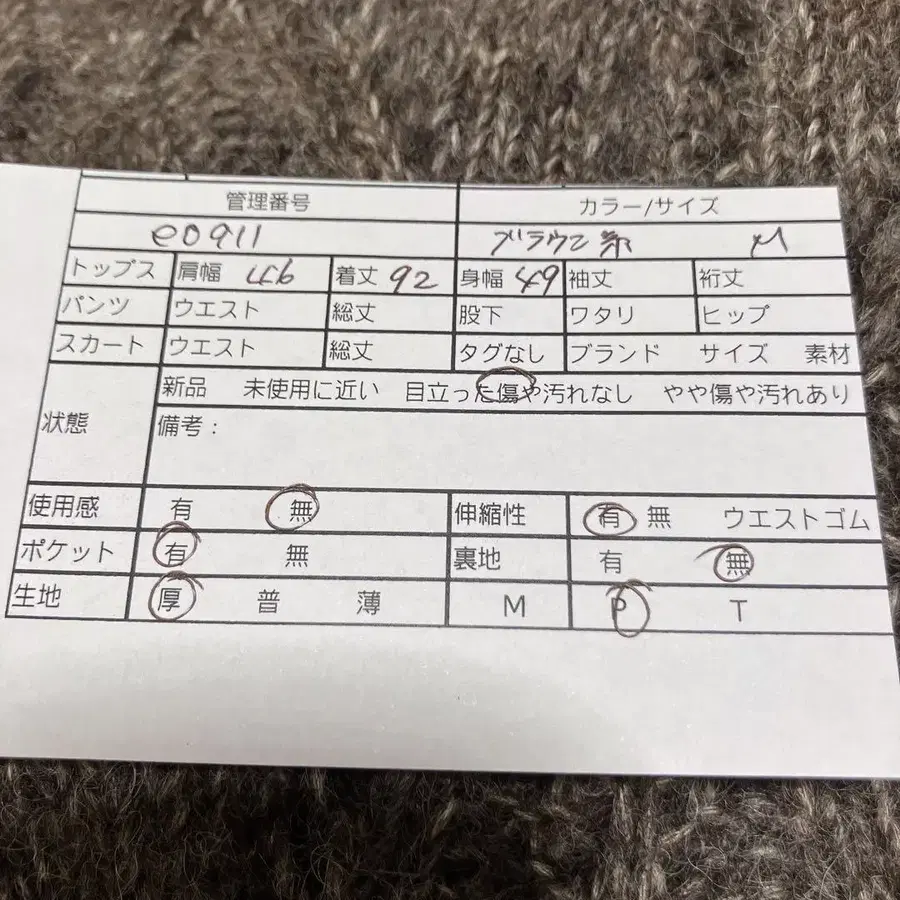 管理番号 カラー/サイズ
e0911 ブラウン系 M
トップス 肩幅 46 着丈 92 身幅 49 袖丈 裄丈
パンツ ウエスト 総丈 股下 ワタリ ヒップ
スカート ウエスト 総丈 タグなし ブランド サイズ 素材
状態 新品 未使用に近い 目立った傷や汚れなし やや傷や汚れあり
備考：
使用感 有 無 伸縮性 有 無 ウエストゴム
ポケット 有 無 裏地 有 無
生地 厚 普 薄 M P T